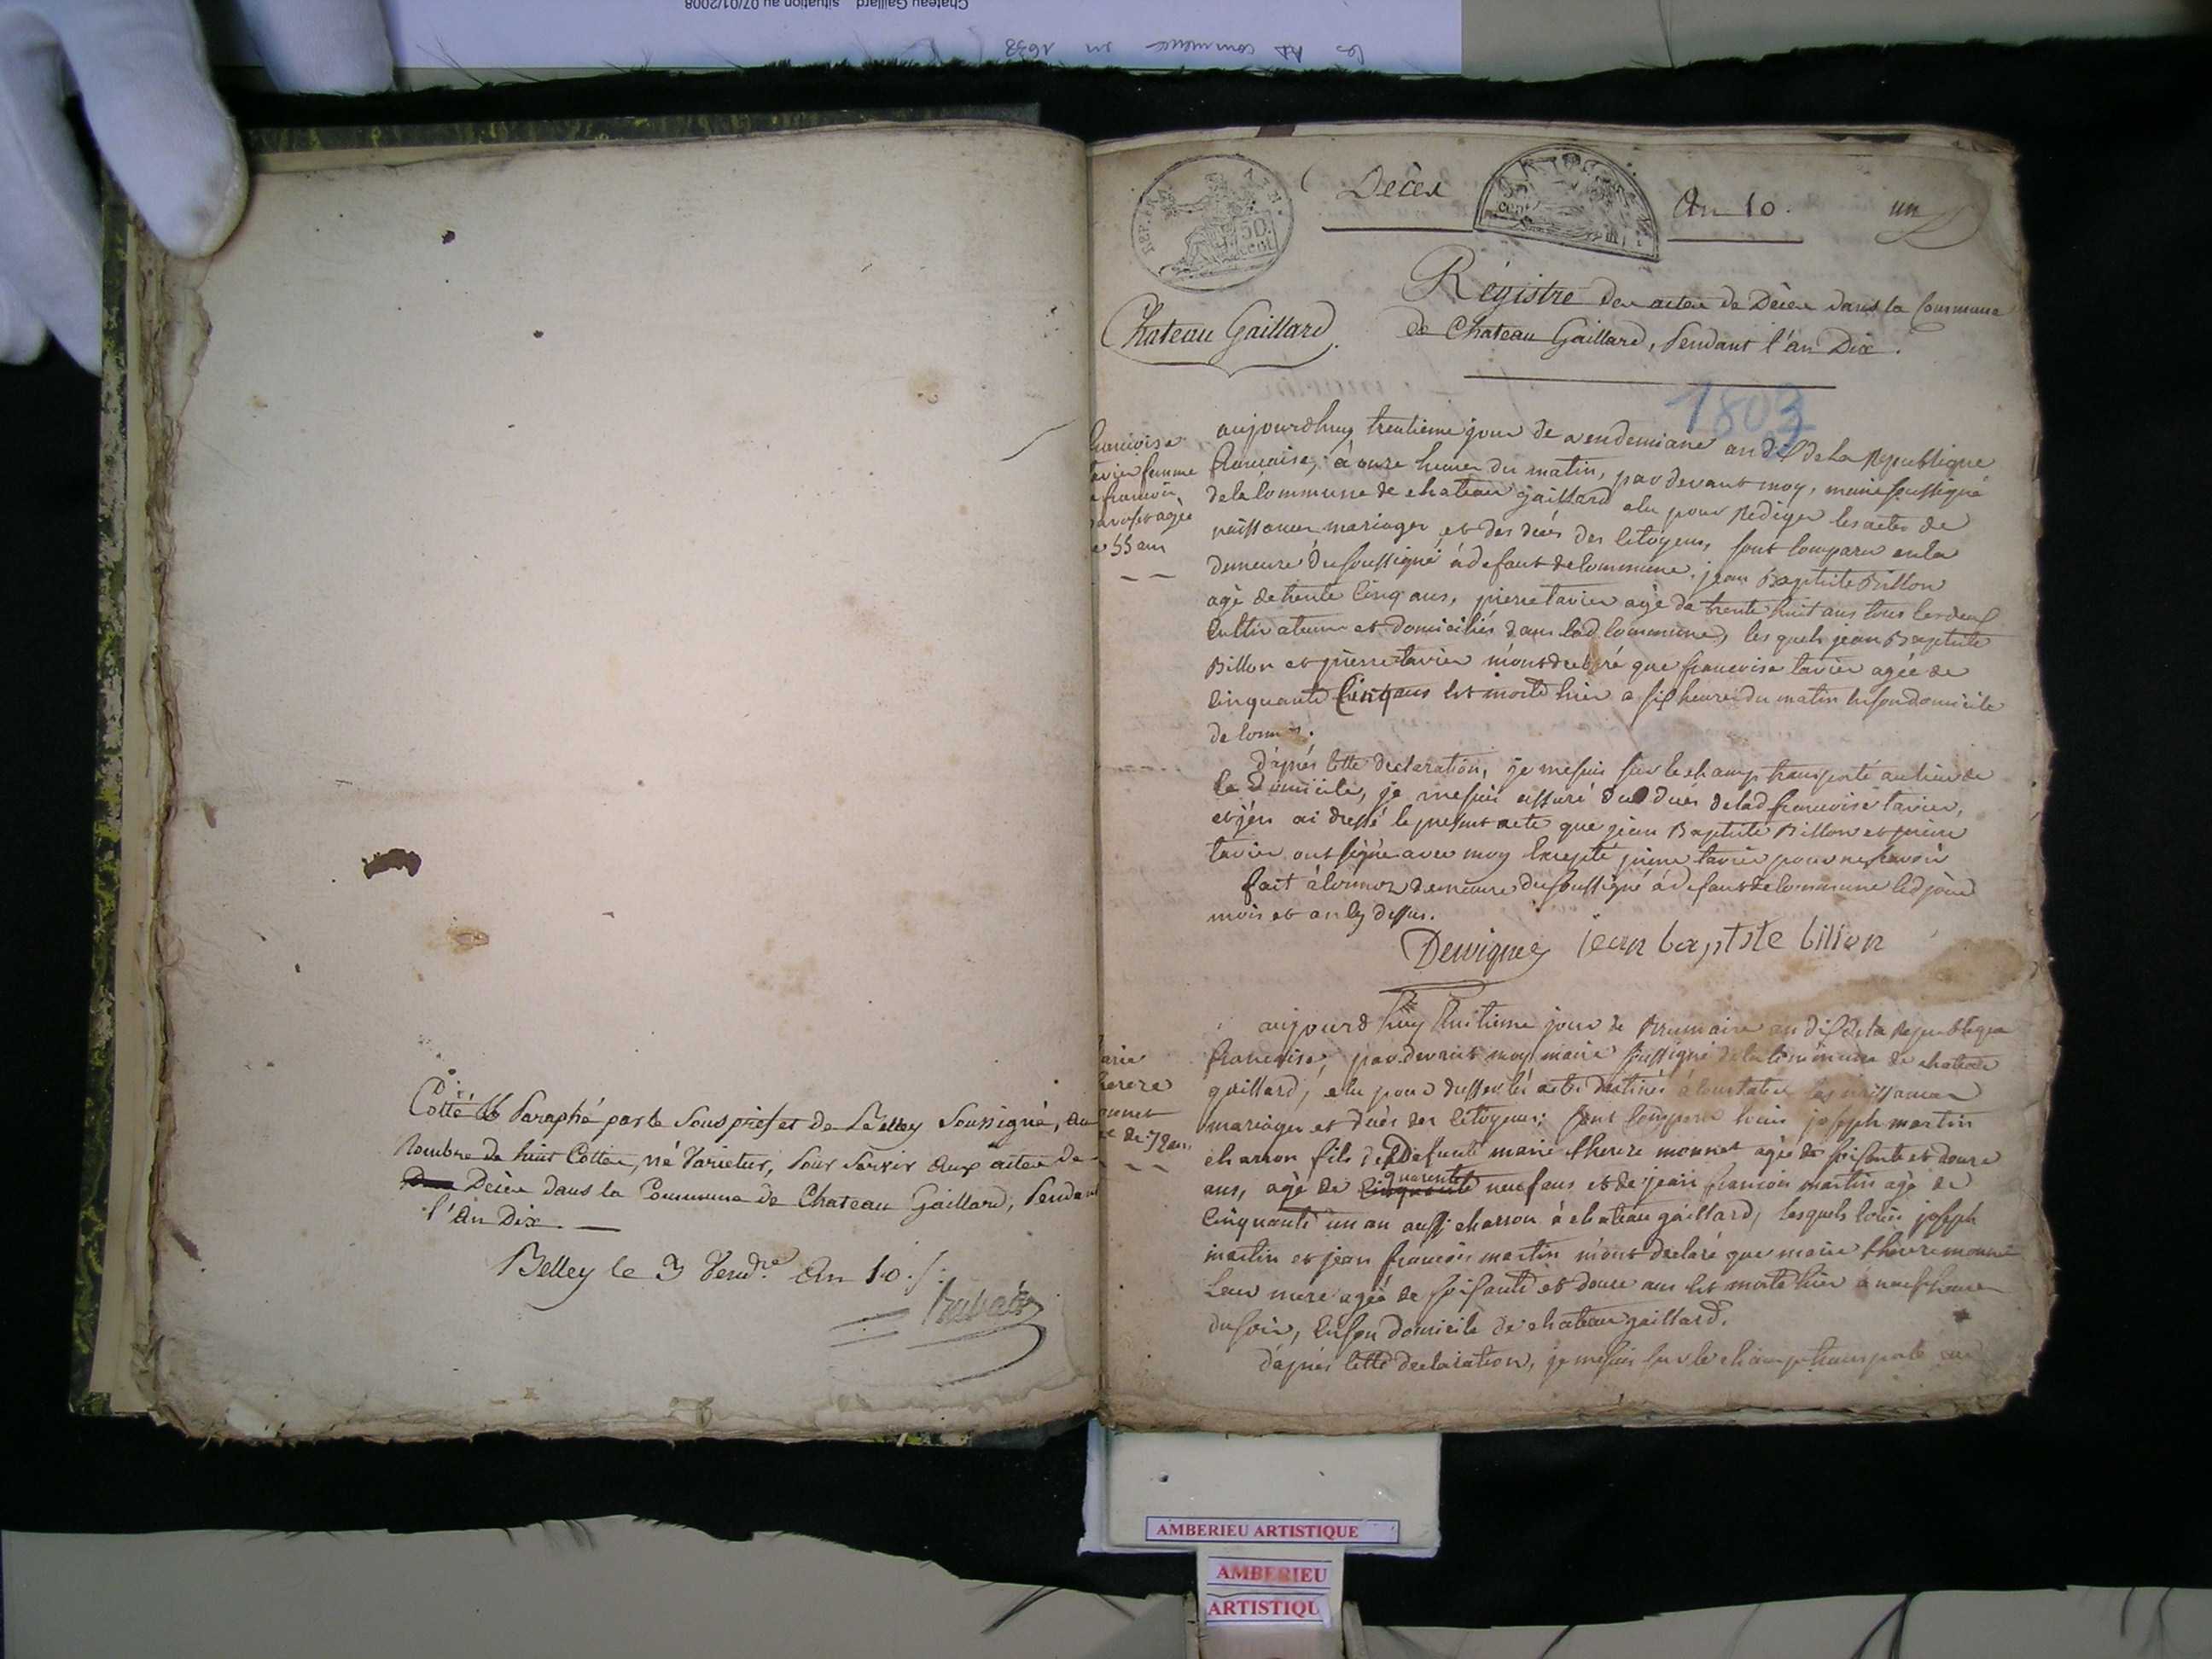 Chateau Gaillard situation au 07/01/2008
les commence en 1638
Cotté et Paraphé par le Sous préfet de Belley Soussigné, au
Nombre de huit Cottes, né Varietur, Pour Servir aux actes de
Décès dans la Commune de Chateau Gaillard, Pendant
l'An Dix.
Belley le 3 Vend.re An 10.
Décès An 10. un
REP. FRA
50 cent
Régistre des actes de Décès dans la Commune
de Chateau Gaillard, Pendant l'an Dix.
Chateau Gaillard.
1803
francoise
tavier femme
francois
agée
55 ans
aujourdhuy trentieme jour de vendemiaire an dix de la Republique
francaise, à onze heures du matin, par devant moy, maire soussigné
de la commune de chateau gaillard elu pour rediger les actes de
naissances mariages et des décès des citoyens, sont comparu en la
demeure du soussigné à defaut de commune. jean Baptiste Billon
agé de trente cinq ans, pierre tavier agé de trente huit ans tous les deux
cultivateurs et domiciliés dans lad commune, les quels jean Baptiste
Billon et pierre tavier m'ont declaré que francoise tavier agée de
cinquante cinq ans est morte hier a six heures du matin en son domicile
de
d'après cette declaration, je me suis sur le champ transporté au lieu de
ce Domicile, je me suis assuré du décès de lad francoise tavier,
et j'en ai dressé le present acte que jean Baptiste Billon et pierre
tavier ont signé avec moy excepté pierre tavier pour ne savoir
fait à cormoz demeure du soussigné à defaut de commune led jour
mois et an cy dessus.
jean baptiste billon
marie
therese
monnet
de 72 ans
aujourd huy huitieme jour de Brumaire an dix de la Republique
francoise, par devant moy maire soussigné de la commune de chateau
gaillard, elu pour dresser les actes destinés à constater les naissances
mariages et décès des citoyens; sont comparu louis joseph martin
charron fils de Defunte marie therese monnet agée de soisante et douze
ans, agé de quarante neuf ans et de jean francois martin agé de
cinquante un an aussi charron à chateau gaillard, lesquels louis joseph
martin et jean francois martin m'ont declaré que marie therese monnet
leur mere agée de soisante et douze ans est morte hier à neuf heures
du soir, en son domicile de chateau gaillard.
d'après cette declaration, je me suis sur le champ transporté au
AMBERIEU ARTISTIQUE
AMBERIEU
ARTISTIQU